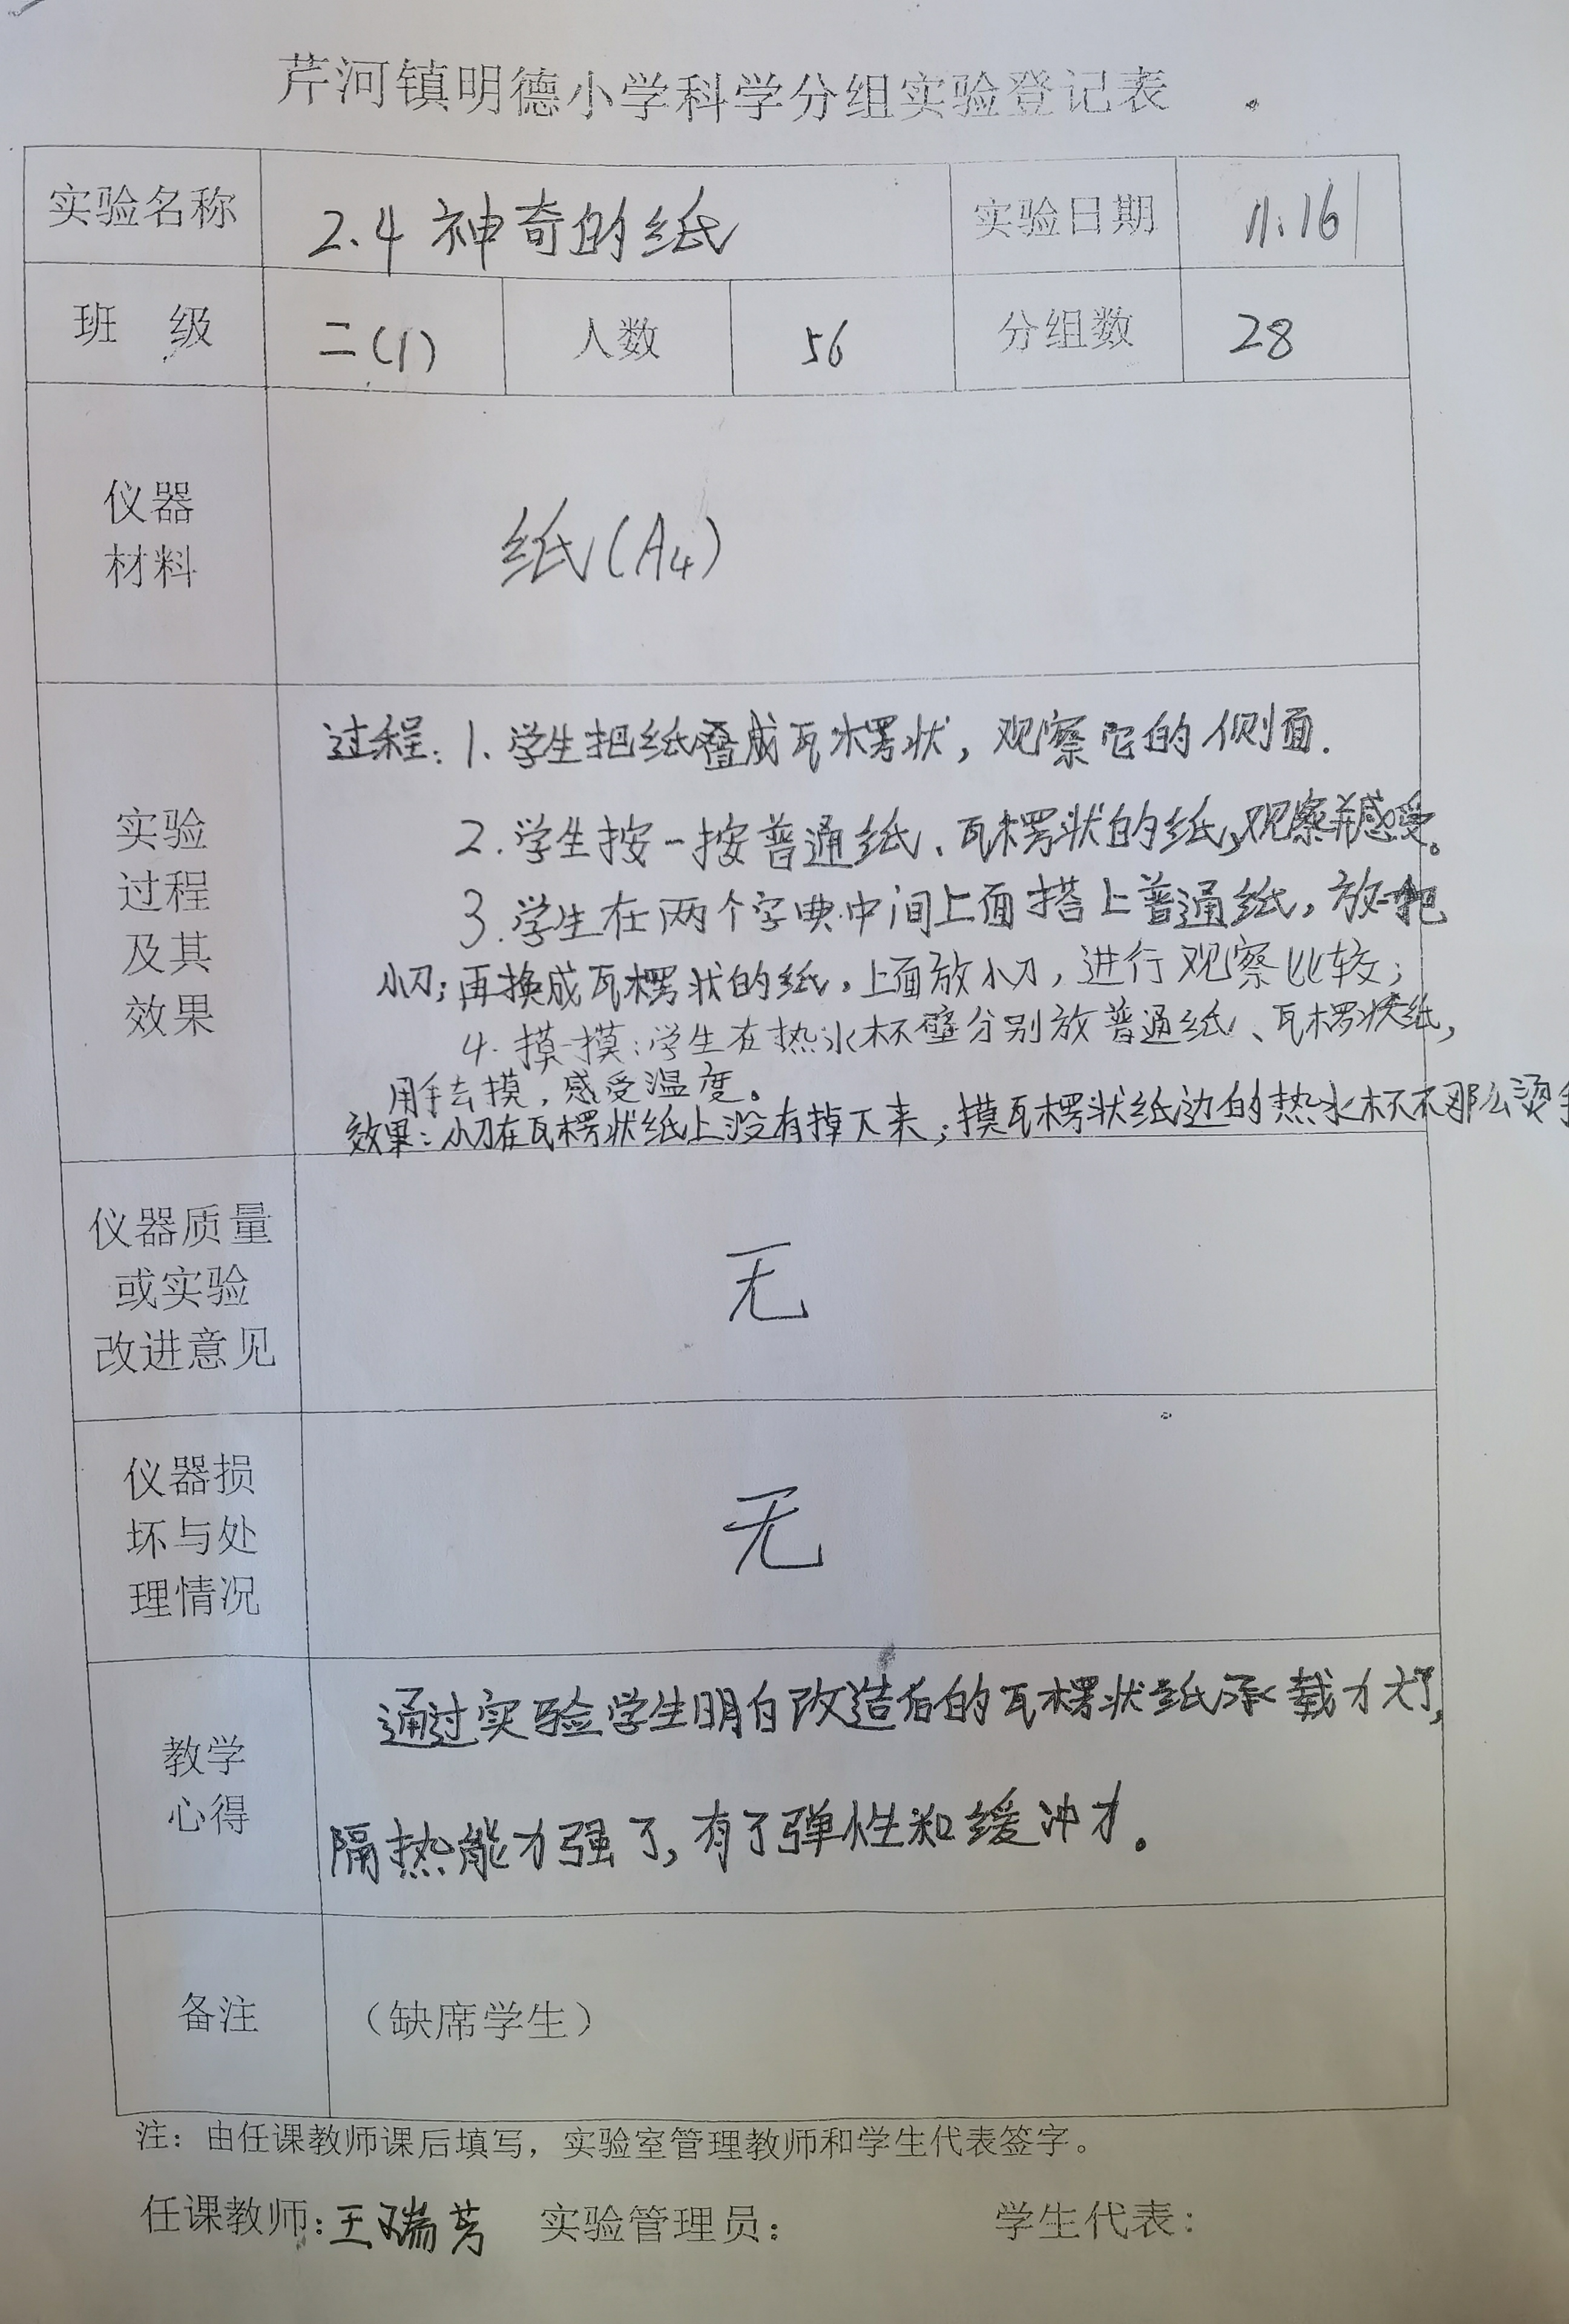 芹河镇明德小学科学分组实验登记表
实验名称 2.4 神奇的纸 实验日期 11.16
班 级 二(1) 人数 56 分组数 28
仪器
材料
纸(A4)
实验
过程
及其
效果
过程: 1. 学生把纸叠成瓦楞状, 观察它的侧面.
2. 学生按一按普通纸、瓦楞状的纸,观察并感受。
3. 学生在两个字典中间上面搭上普通纸, 放一把
小刀; 再换成瓦楞状的纸, 上面放小刀, 进行观察比较;
4. 摸一摸: 学生在热水杯壁分别放普通纸、瓦楞状纸,
用手去摸, 感受温度。
效果: 小刀在瓦楞状纸上没有掉下来; 摸瓦楞状纸边的热水杯不那么烫手
仪器质量
或实验
改进意见
无
仪器损
坏与处
理情况
无
教学
心得
通过实验学生明白改造后的瓦楞状纸承载力大了,
隔热能力强了, 有了弹性和缓冲力。
备注 （缺席学生）
注：由任课教师课后填写，实验室管理教师和学生代表签字。
任课教师: 王瑞芳 实验管理员： 学生代表：